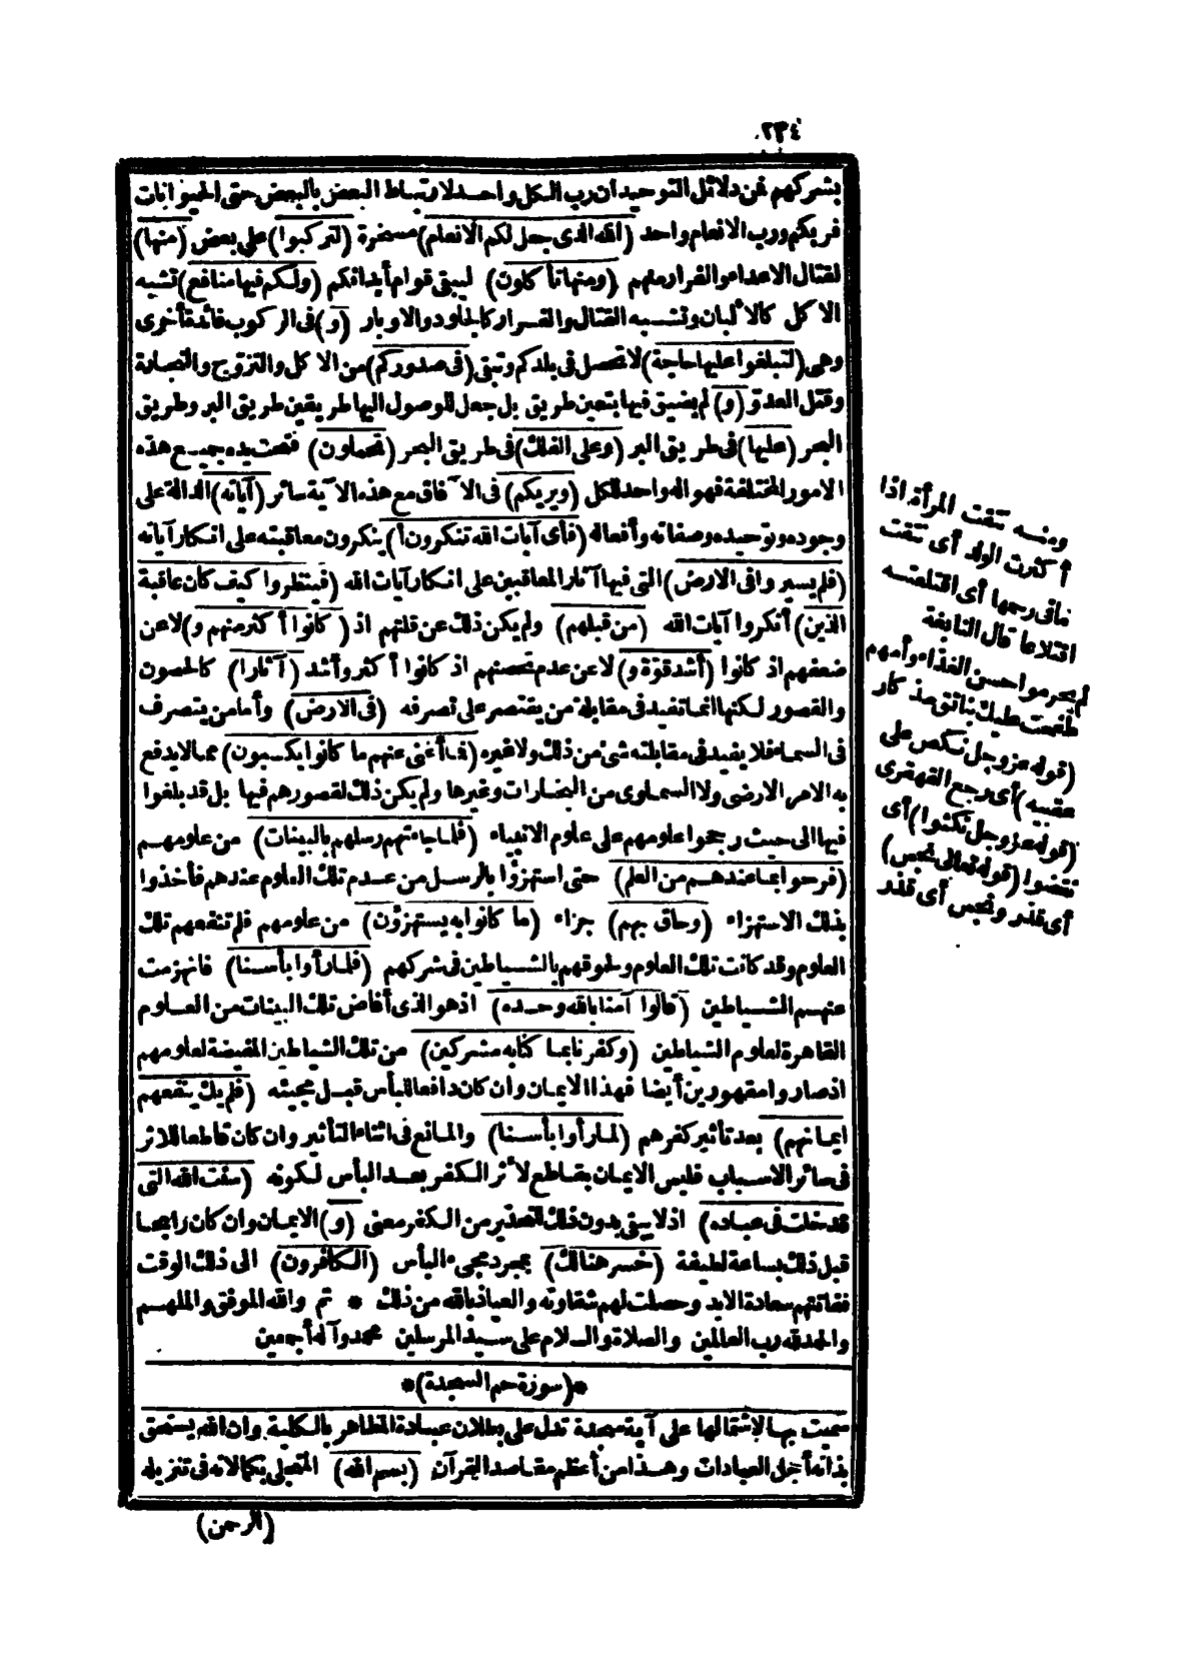 ٢٣٤
بشركهم فمن دلائل التوحيد ان رب الكل واحد لارتباط البعض بالبعض حتى الحيوانات
فربكم ورب الانعام واحد (الله الذى جعل لكم الانعام) مسخرة (لتركبوا) على بعض (منها)
لقتال الاعداء والفرار منهم (ومنها تأكلون) ليبقى قوام أبدانكم (ولكم فيها منافع) تشبه
الاكل كالألبان وتشبه القتال والفرار كالجلود والاوبار (و) فى الركوب فائدة أخرى
وهى (لتبلغوا عليها حاجة) لا تحصل فى بلدكم وتبقى (فى صدوركم) من الاكل والتزوج والتجارة
وقتل العدوّ (و) لم يضيق فيها بتعين طريق بل جعل للوصول اليها طريقين طريق البر وطريق
البحر (عليها) فى طريق البر (وعلى الفلك) فى طريق البحر (تحملون) فتحت يده جميع هذه
الامور المختلفة فهو اله واحد للكل (ويريكم) فى الآفاق مع هذه الآية سائر (آياته) الدالة على
وجوده وتوحيده وصفاته وأفعاله (فأى آيات الله تنكرون أ) ينكرون معاقبته على انكار آياته
(فلم يسيروا فى الارض) التى فيها آثار المعاقبين على انكار آيات الله (فينظروا كيف كان عاقبة
الذين) أنكروا آيات الله (من قبلهم) ولم يكن ذلك عن قلتهم اذ (كانوا أكثر منهم و) لا عن
ضعفهم اذ كانوا (أشد قوة و) لا عن عدم تحصنهم اذ كانوا أكثر وأشد (آثارا) كالحصون
والقصور لكنها انما تفيد فى مقابلة من يقتصر على تصرفه (فى الارض) وأما من يتصرف
فى السماء فلا يفيد فى مقابلته شئ من ذلك ولا غيره (فما أغنى عنهم ما كانوا يكسبون) مما لا يدفع
به الامر الارضى ولا السماوى من البخارات وغيرها ولم يكن ذلك لقصورهم فيها بل قد بلغوا
فيها الى حيث رجحوا علومهم على علوم الانبياء (فلما جاءتهم رسلهم بالبينات) من علومهم
(فرحوا بما عندهم من العلم) حتى استهزؤا بالرسل من عدم تلك العلوم عندهم فأخذوا
بذلك الاستهزاء (وحاق بهم) جزاء (ما كانوا به يستهزؤن) من علومهم فلم تنفعهم تلك
العلوم وقد كانت تلك العلوم ولحوقهم بالشياطين فى شركهم (فلما رأوا بأسنا) فانهزمت
عنهم الشياطين (قالوا آمنا بالله وحده) اذ هو الذى أفاض تلك البينات من العلوم
القاهرة لعلوم الشياطين (وكفرنا بما كنا به مشركين) من تلك الشياطين المفيضة لعلومهم
اذ صاروا مقهورين أيضا فهذا الايمان وان كان دافعا للبأس قبل مجيئه (فلم يك ينفعهم
ايمانهم) بعد تأثير كفرهم (لما رأوا بأسنا) والمانع فى اثناء التأثير وان كان قاطعا للاثر
فى سائر الاسباب فليس الايمان بقاطع لأثر الكفر بعد البأس لكونه (سنت الله التى
قد خلت فى عباده) اذ لا يبقى بدون ذلك التحذير من الكفر معنى (و) الايمان وان كان رابحا
قبل ذلك بساعة لطيفة (خسر هنالك) بمجرد مجىء البأس (الكافرون) الى ذلك الوقت
ففاتتهم سعادة الابد وحصلت لهم شقاوته والعياذ بالله من ذلك * تم والله الموفق والملهم
والحمد لله رب العالمين والصلاة والسلام على سيد المرسلين محمد وآله أجمعين
*(سورة حم السجدة)*
سميت بها لاشتمالها على آية سجدة تدل على بطلان عبادة المظاهر بالكلية وان الله يستحق
بذاته أجل العبادات وهذا من أعظم مقاصد القرآن (بسم الله) المتجلى بكمالاته فى تنزيله
(الرحمن)
ومنه نتقت المرأة اذا
أكثرت الولد أى نتقت
مافى رحمها أى اقتلعته
اقتلاعا قال النابغة
لم يحرموا حسن الغذاء وأمهم
طفحت عليك بناتق مذكار
(قوله عز وجل نكص على
عقبيه) أى رجع القهقرى
(قوله عز وجل نكثوا) أى
نقضوا (قوله تعالى نجس)
أى قذر ونجس أى قذر